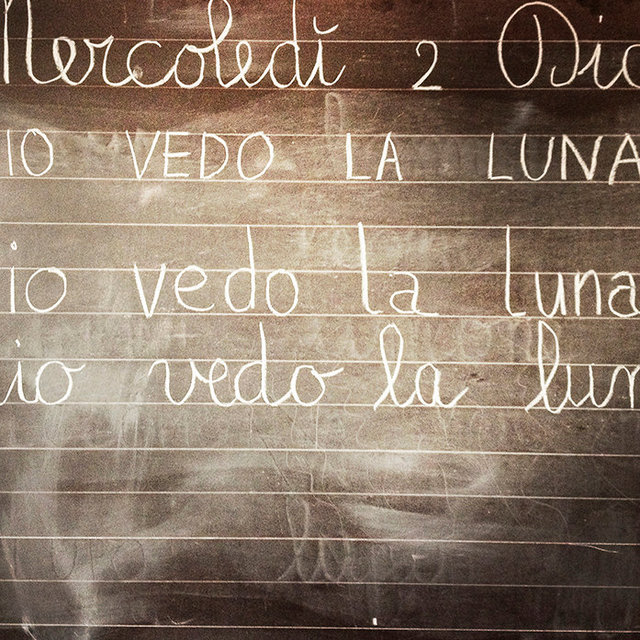 Mercoledì 2 Dic
IO VEDO LA LUNA
io vedo la luna
io vedo la lun